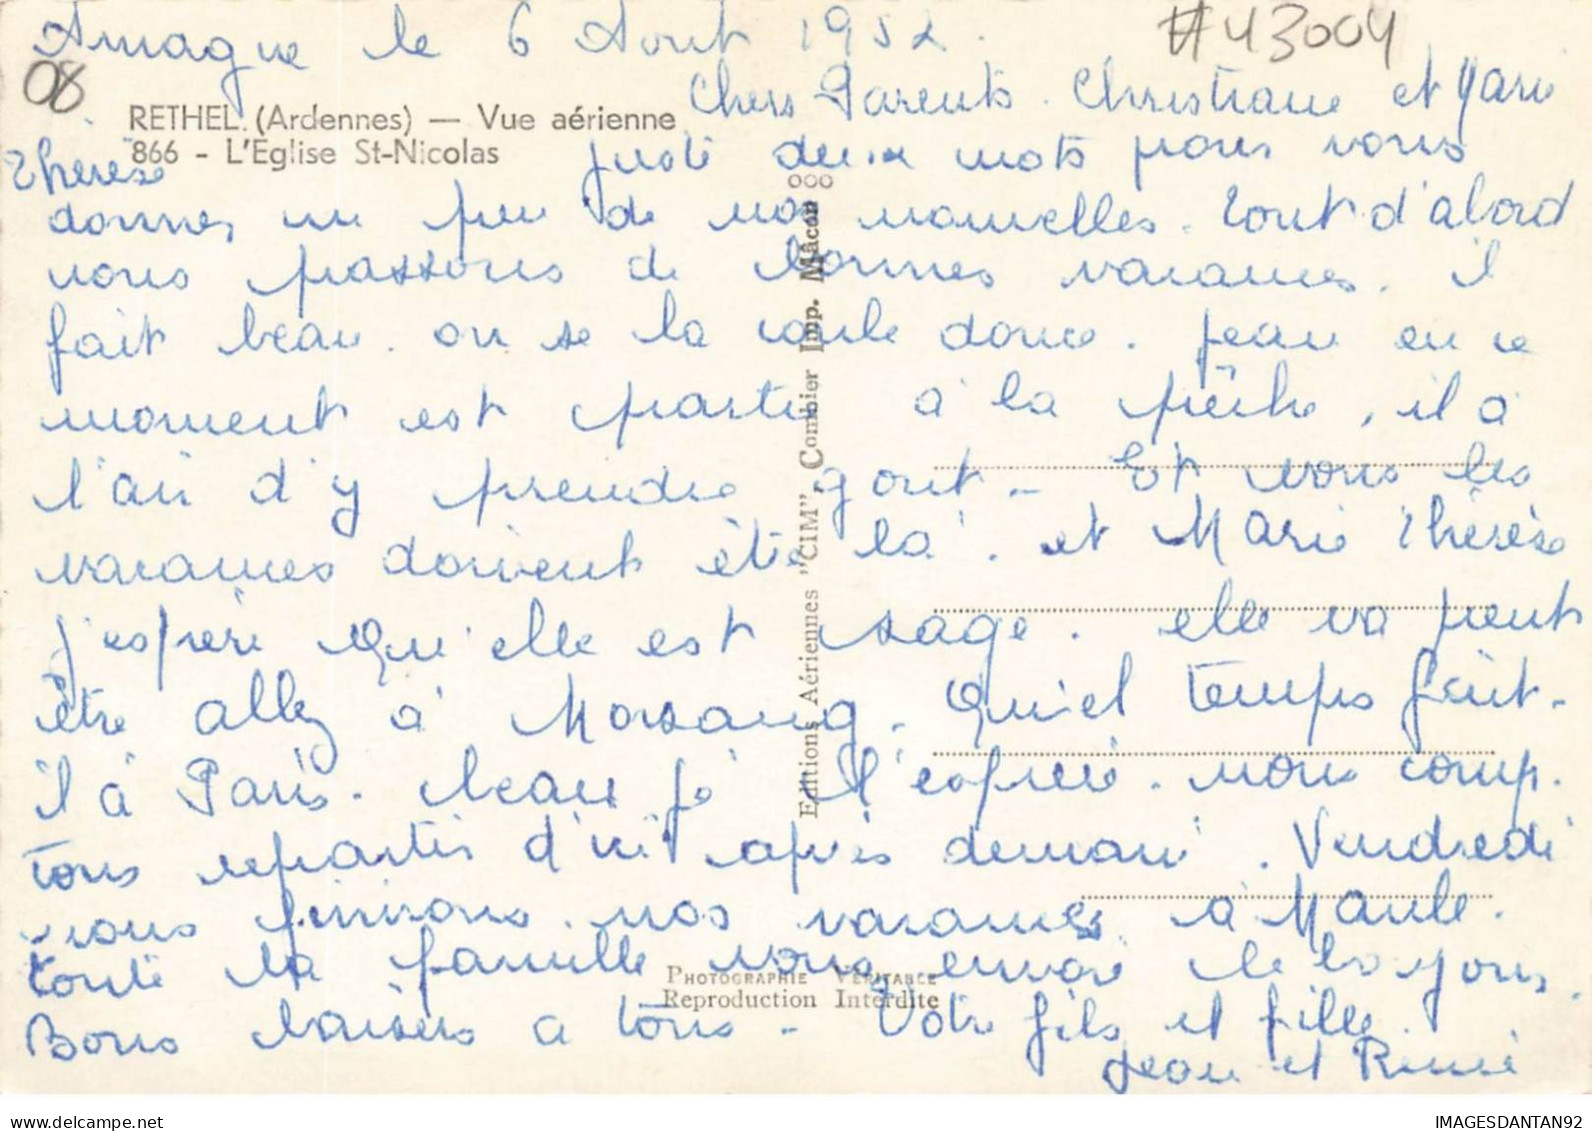 Amagne le 6 Aout 1952.
#43004
08
Chers Parents. Christiane et Marie
RETHEL. (Ardennes) — Vue aérienne
866 - L'Eglise St-Nicolas
Thérèse
juste deux mots pour vous
donner un peu de nos nouvelles. Tout d'abord
nous passons de bonnes vacances. il
fait beau. on se la coule douce. Jean en ce
moment est partie à la pêche, il a
l'air d'y prendre gout - Et vous les
vacances doivent être là. et Marie Thérèse
j'espère qu'elle est sage. elle va peut
être allez à Morsang. Quel temps fait-
il à Paris. beau je l'espère. nous comp.
tons repartir d'ici après demain. Vendredi
nous finirons nos vacances à Maule.
toute la famille vous envoie
Bons baisers a tous - Votre fils et fille.
Jean et
ooo
Editions Aériennes "CIM", Combier Imp. Mâcon
PHOTOGRAPHIE VÉRITABLE
Reproduction Interdite
IMAGESDANTAN92
delcampe.net